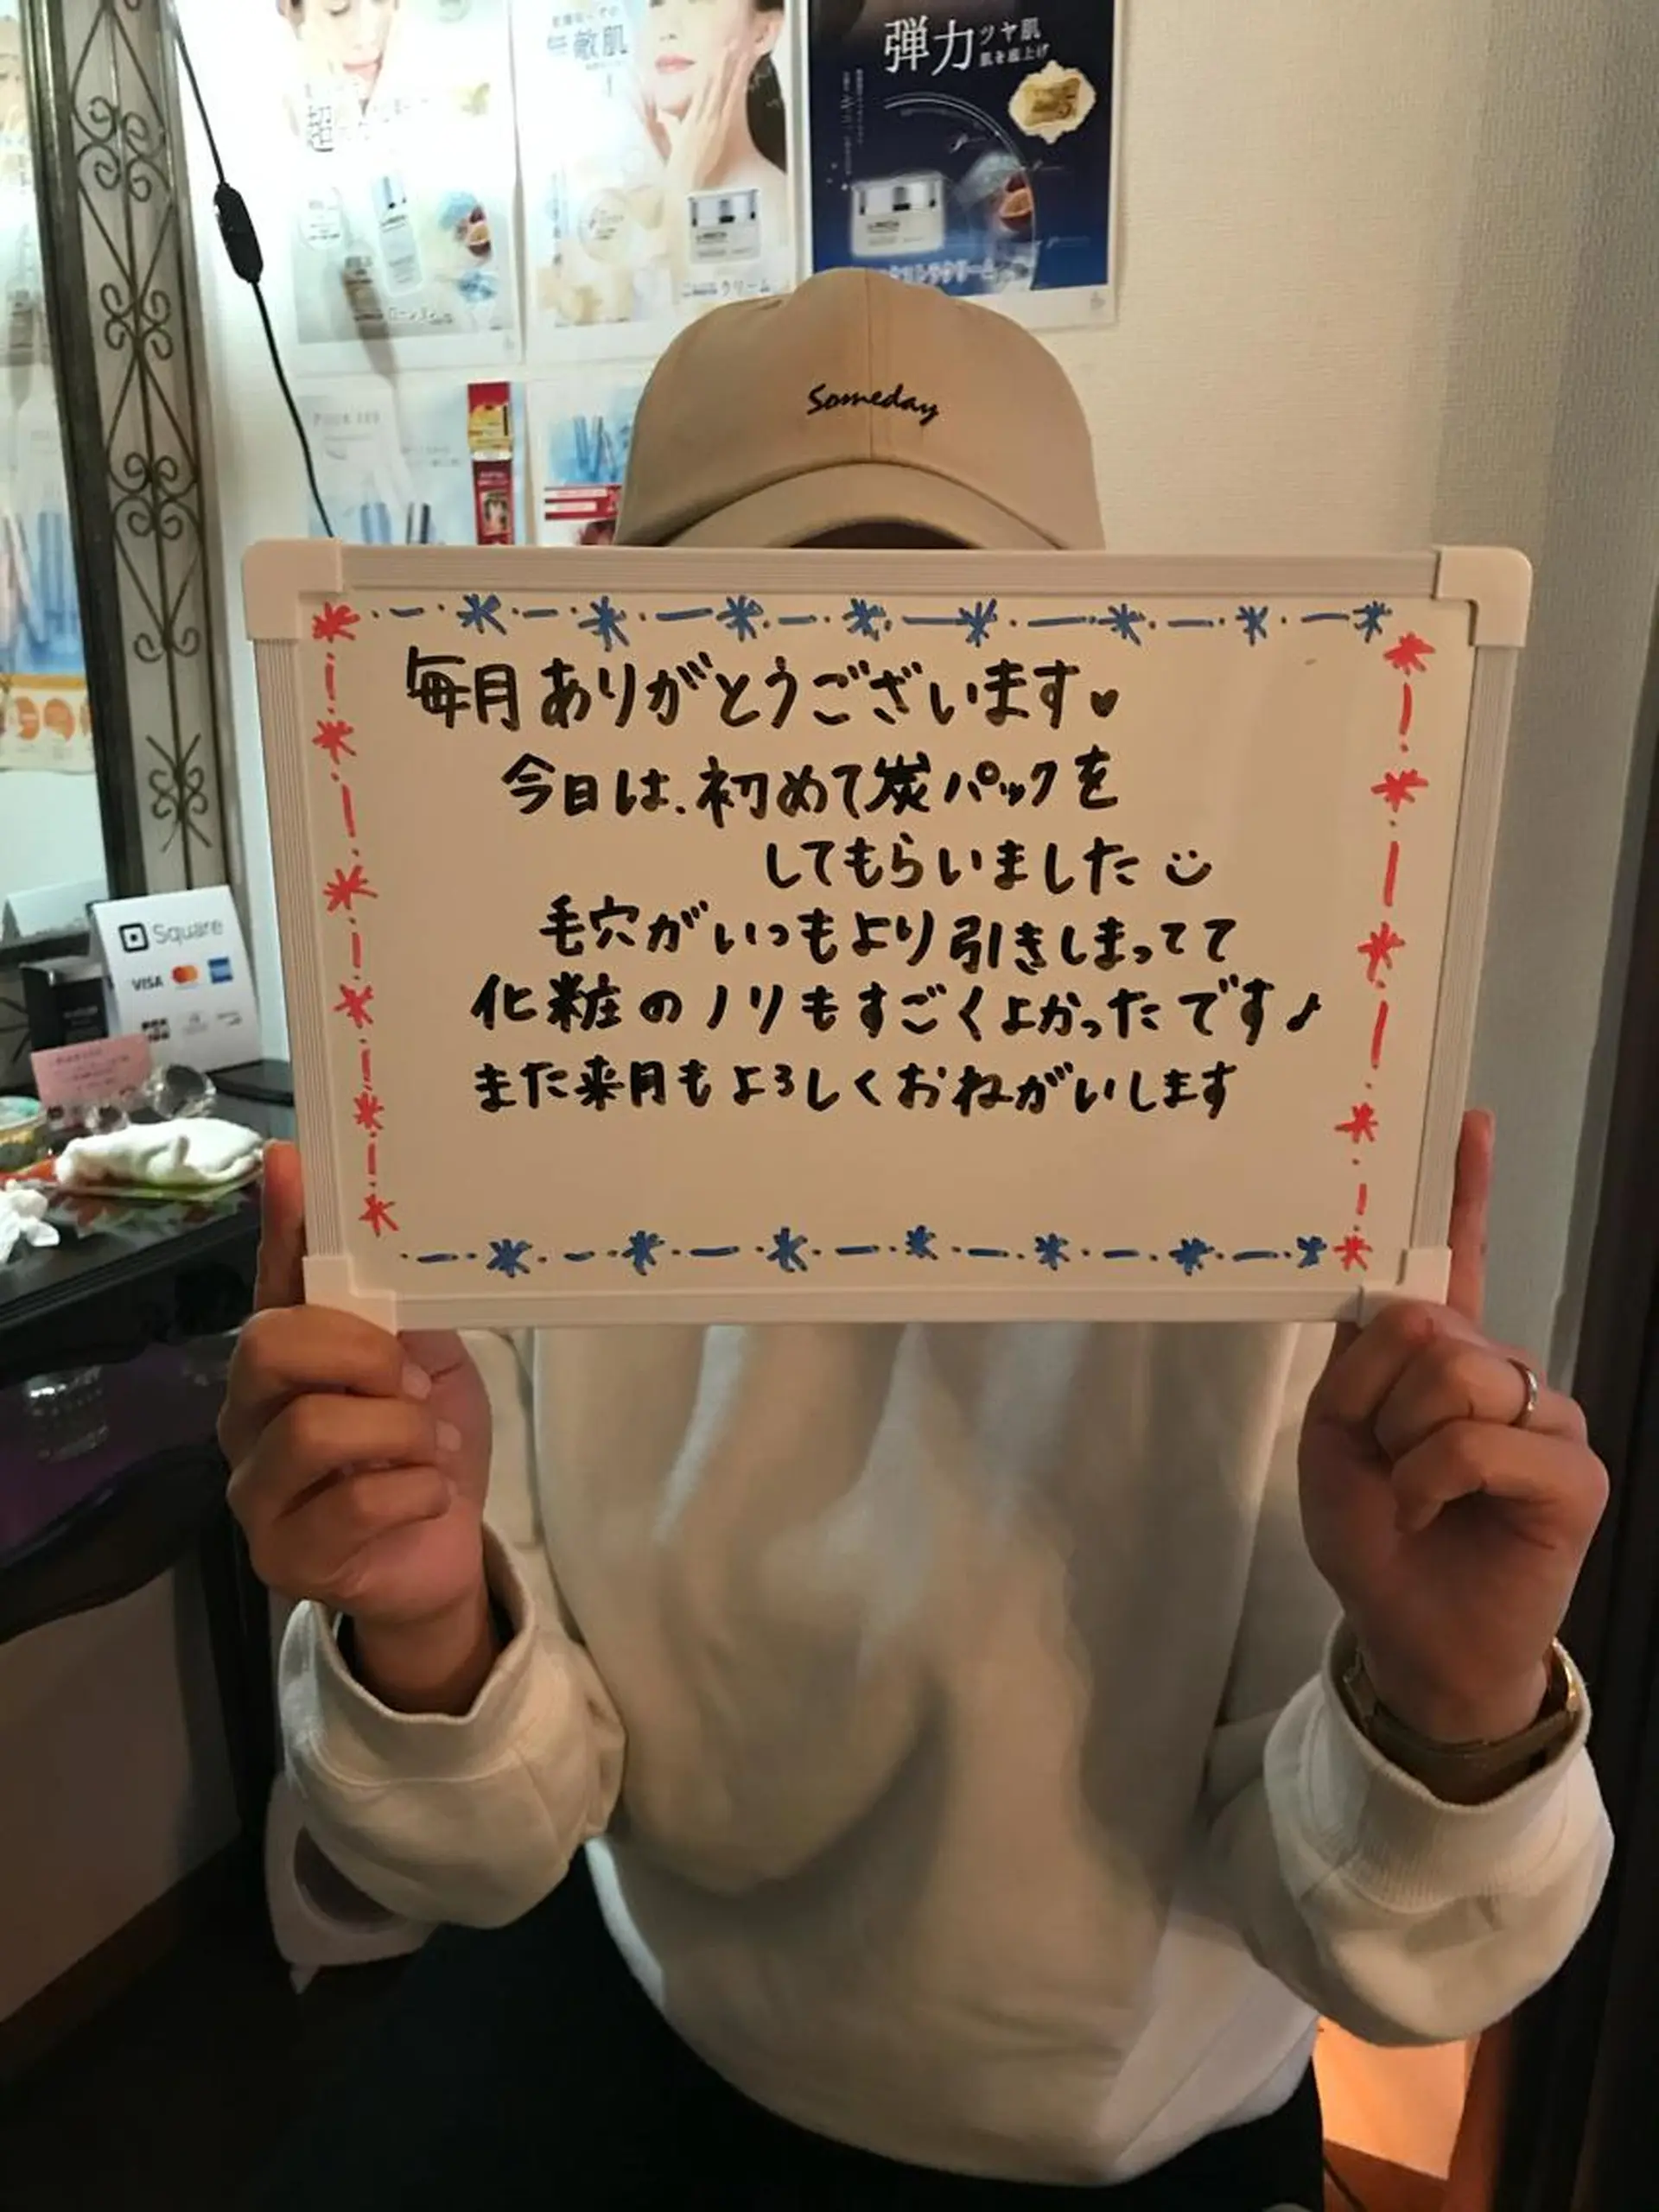 弾力ツヤ肌
肌を底上げ
無敵肌
超
ローション
クリーム
Someday
毎月ありがとうございます♥
今日は、初めて炭パックを
してもらいました
毛穴がいつもより引きしまってて
化粧のノリもすごくよかったです♪
また来月もよろしくおねがいします
Square
VISA